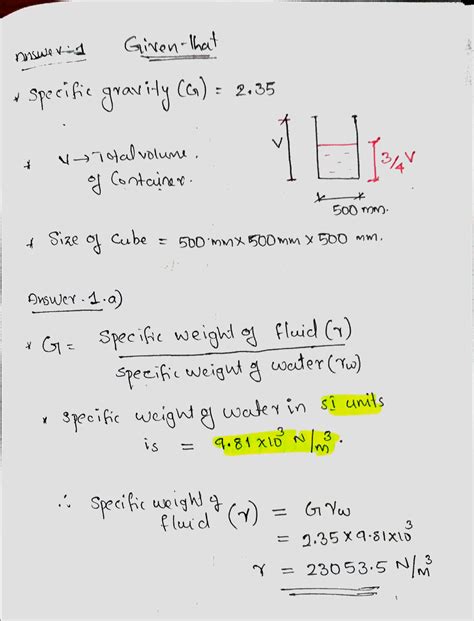 Answer:-1 Given-that
* Specific gravity (G) = 2.35
* V → Total volume.
of Container.
V
3/4 V
500 mm.
* Size of Cube = 500 mm x 500 mm x 500 mm.
Answer.1.a)
* G = Specific weight of fluid (γ)
Specific weight of water (γw)
* Specific weight of water in SI units
is = 9.81 x 10³ N/m³.
∴ Specific weight of
fluid (γ) = G γw
= 2.35 x 9.81 x 10³
γ = 23053.5 N/m³